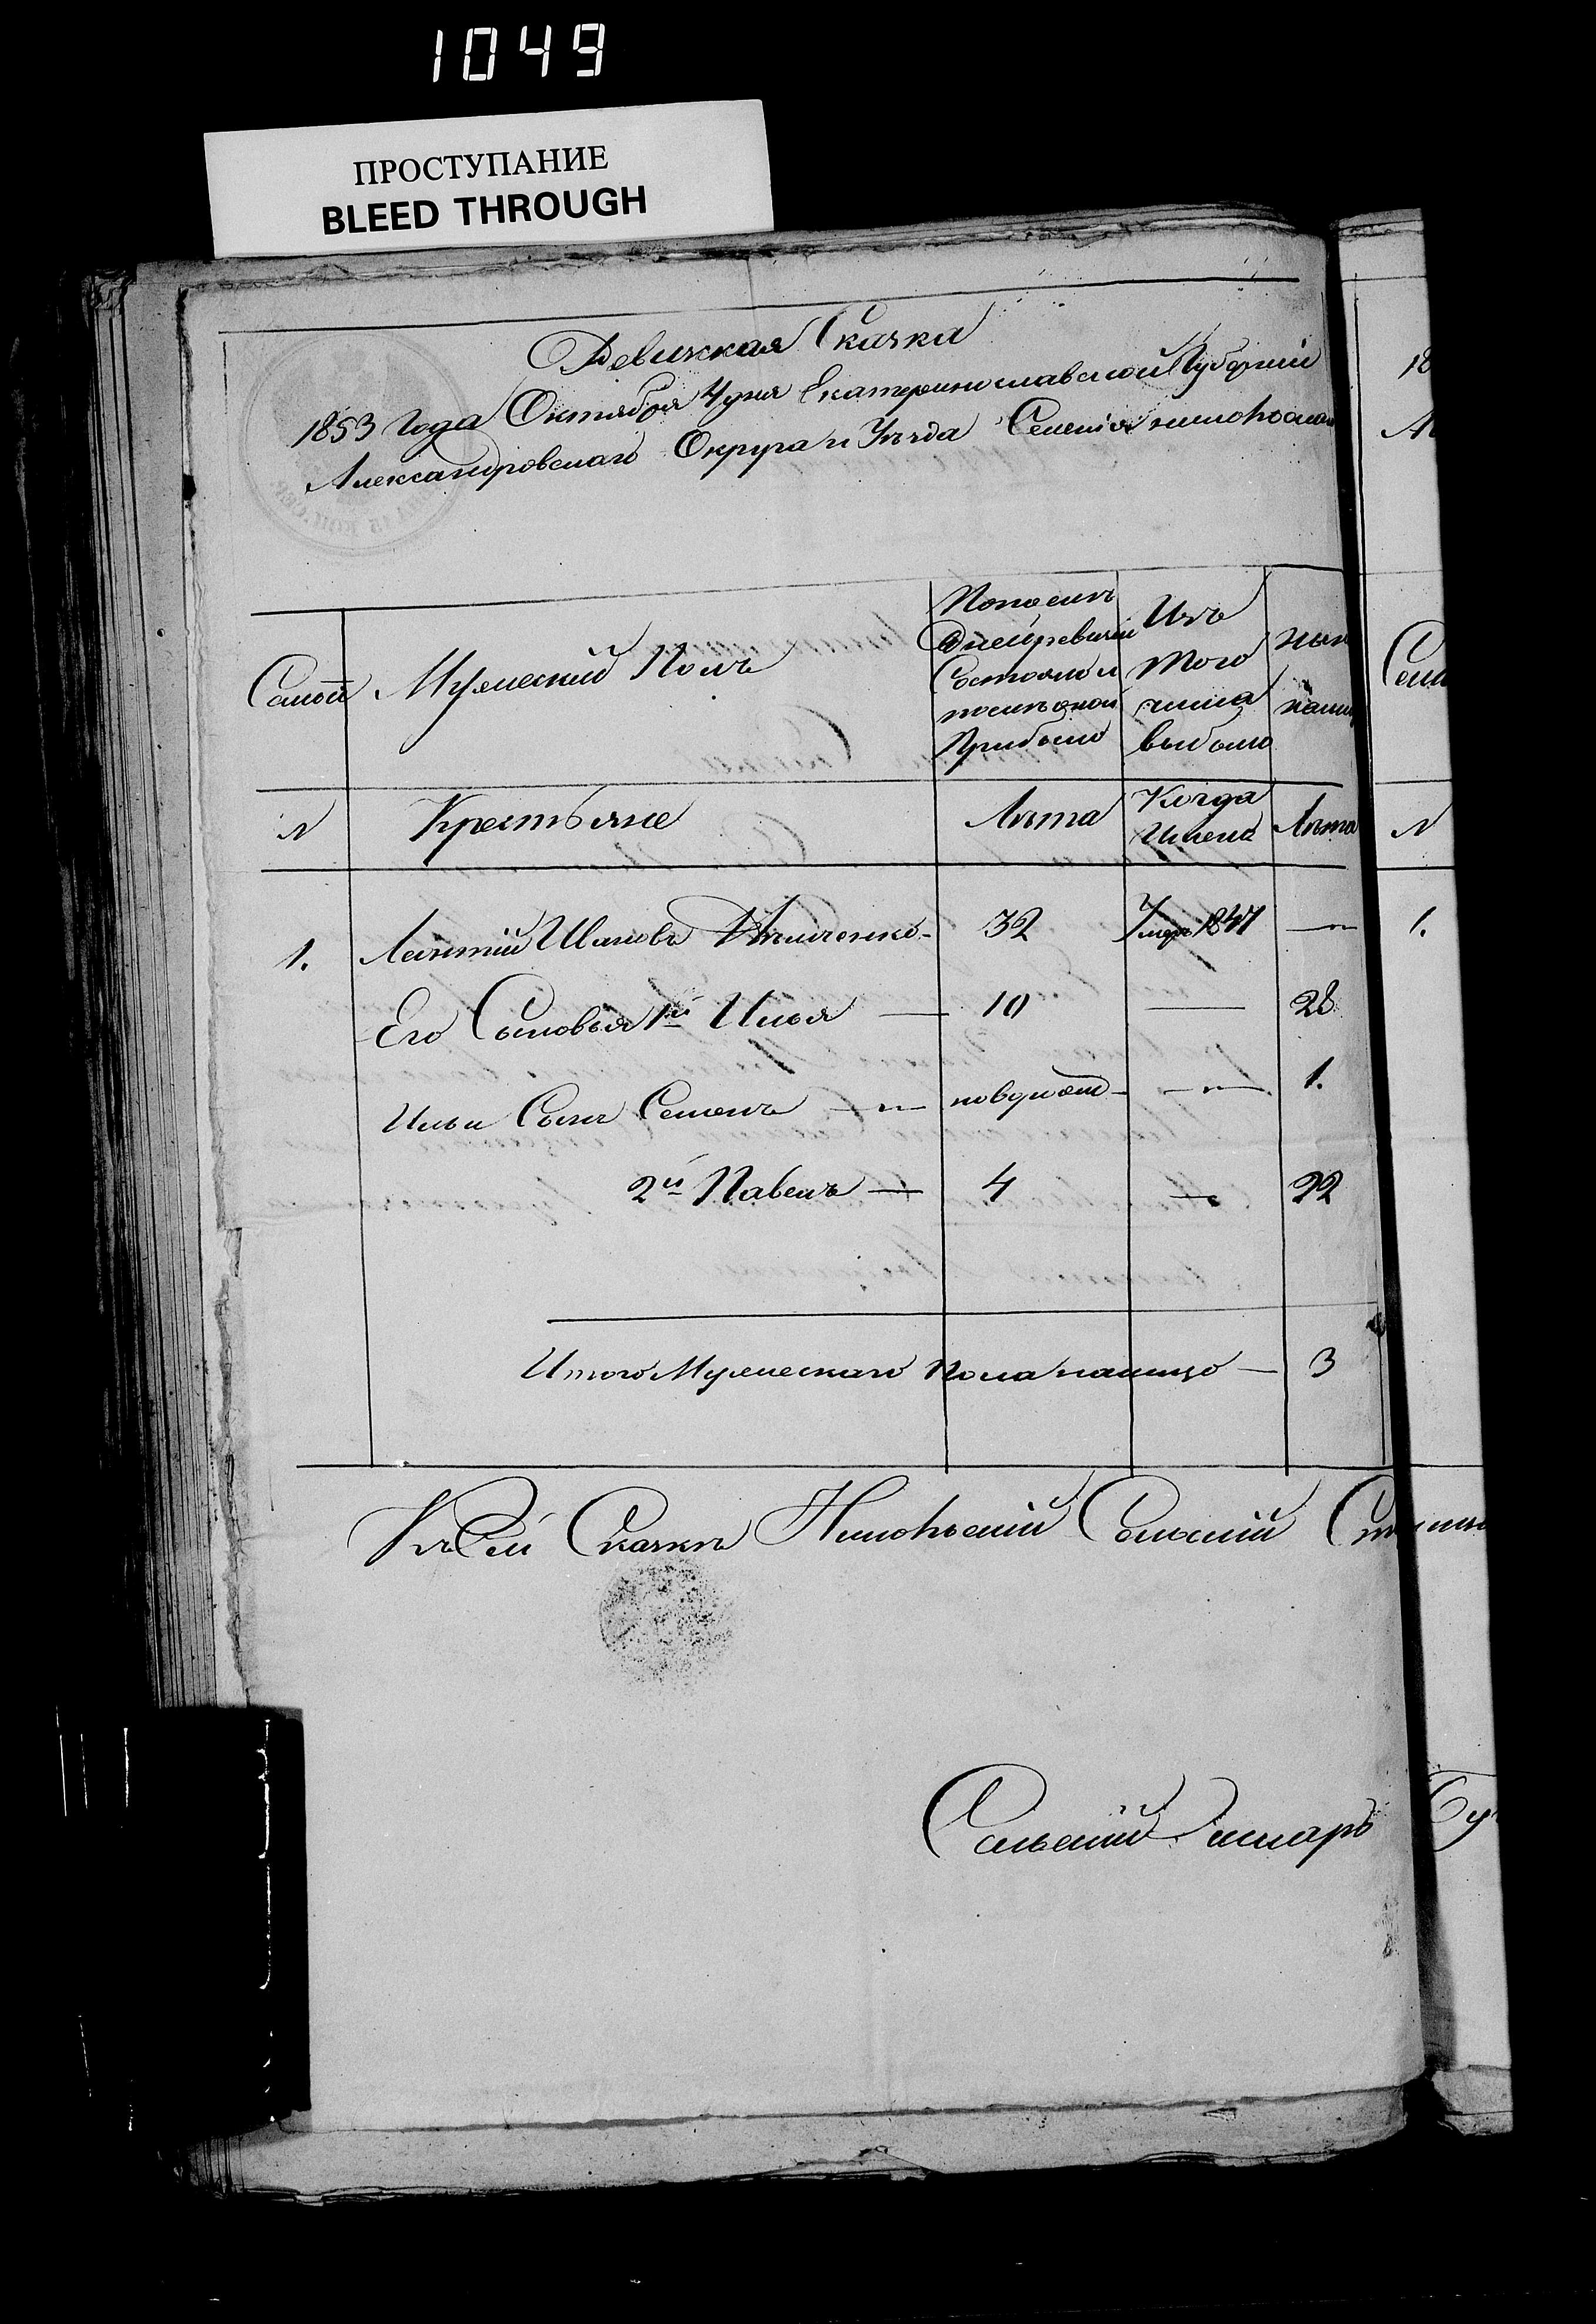 1049
ПРОСТУПАНИЕ
BLEED THROUGH
Ревизская Сказка
1853 Года Октября 4 дня Екатеринославской Губернии
Александровскаго Округа и Уезда Селения
18
Семьи
Мужеский Полъ
По последней ревизии Состояло и после оной Прибыло
Изъ того числа выбыло
ныне
налицо
N
Крестьяне
Лета
Когда Именно
Лета
N
1.
Леонтий Ивановъ
32
Умеръ 1847
1.
Его Сыновья 1й Илья
10
28
Ильи Сынъ Семенъ
новорожд
1.
2й Павелъ
4
22
Итого Мужескаго пола налицо
3
Къ Сей Сказке Сельский
Сельский Писарь